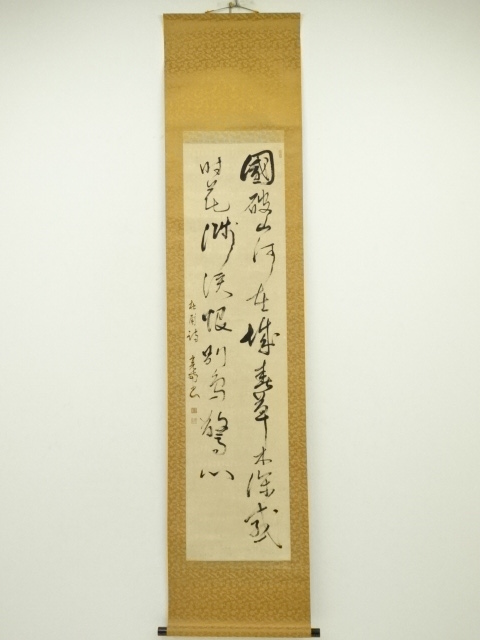 國破山河在城春草木深感
時花濺淚恨別鳥驚心
杜甫詩